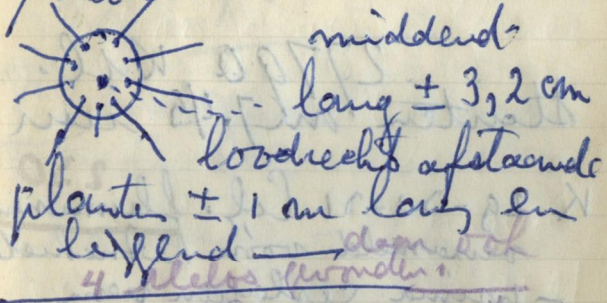 middend-
lang ± 3,2 cm
loodrecht afstaande
planten ± 1 m lang en
liggend — daar ook
4 stelos gevonden.